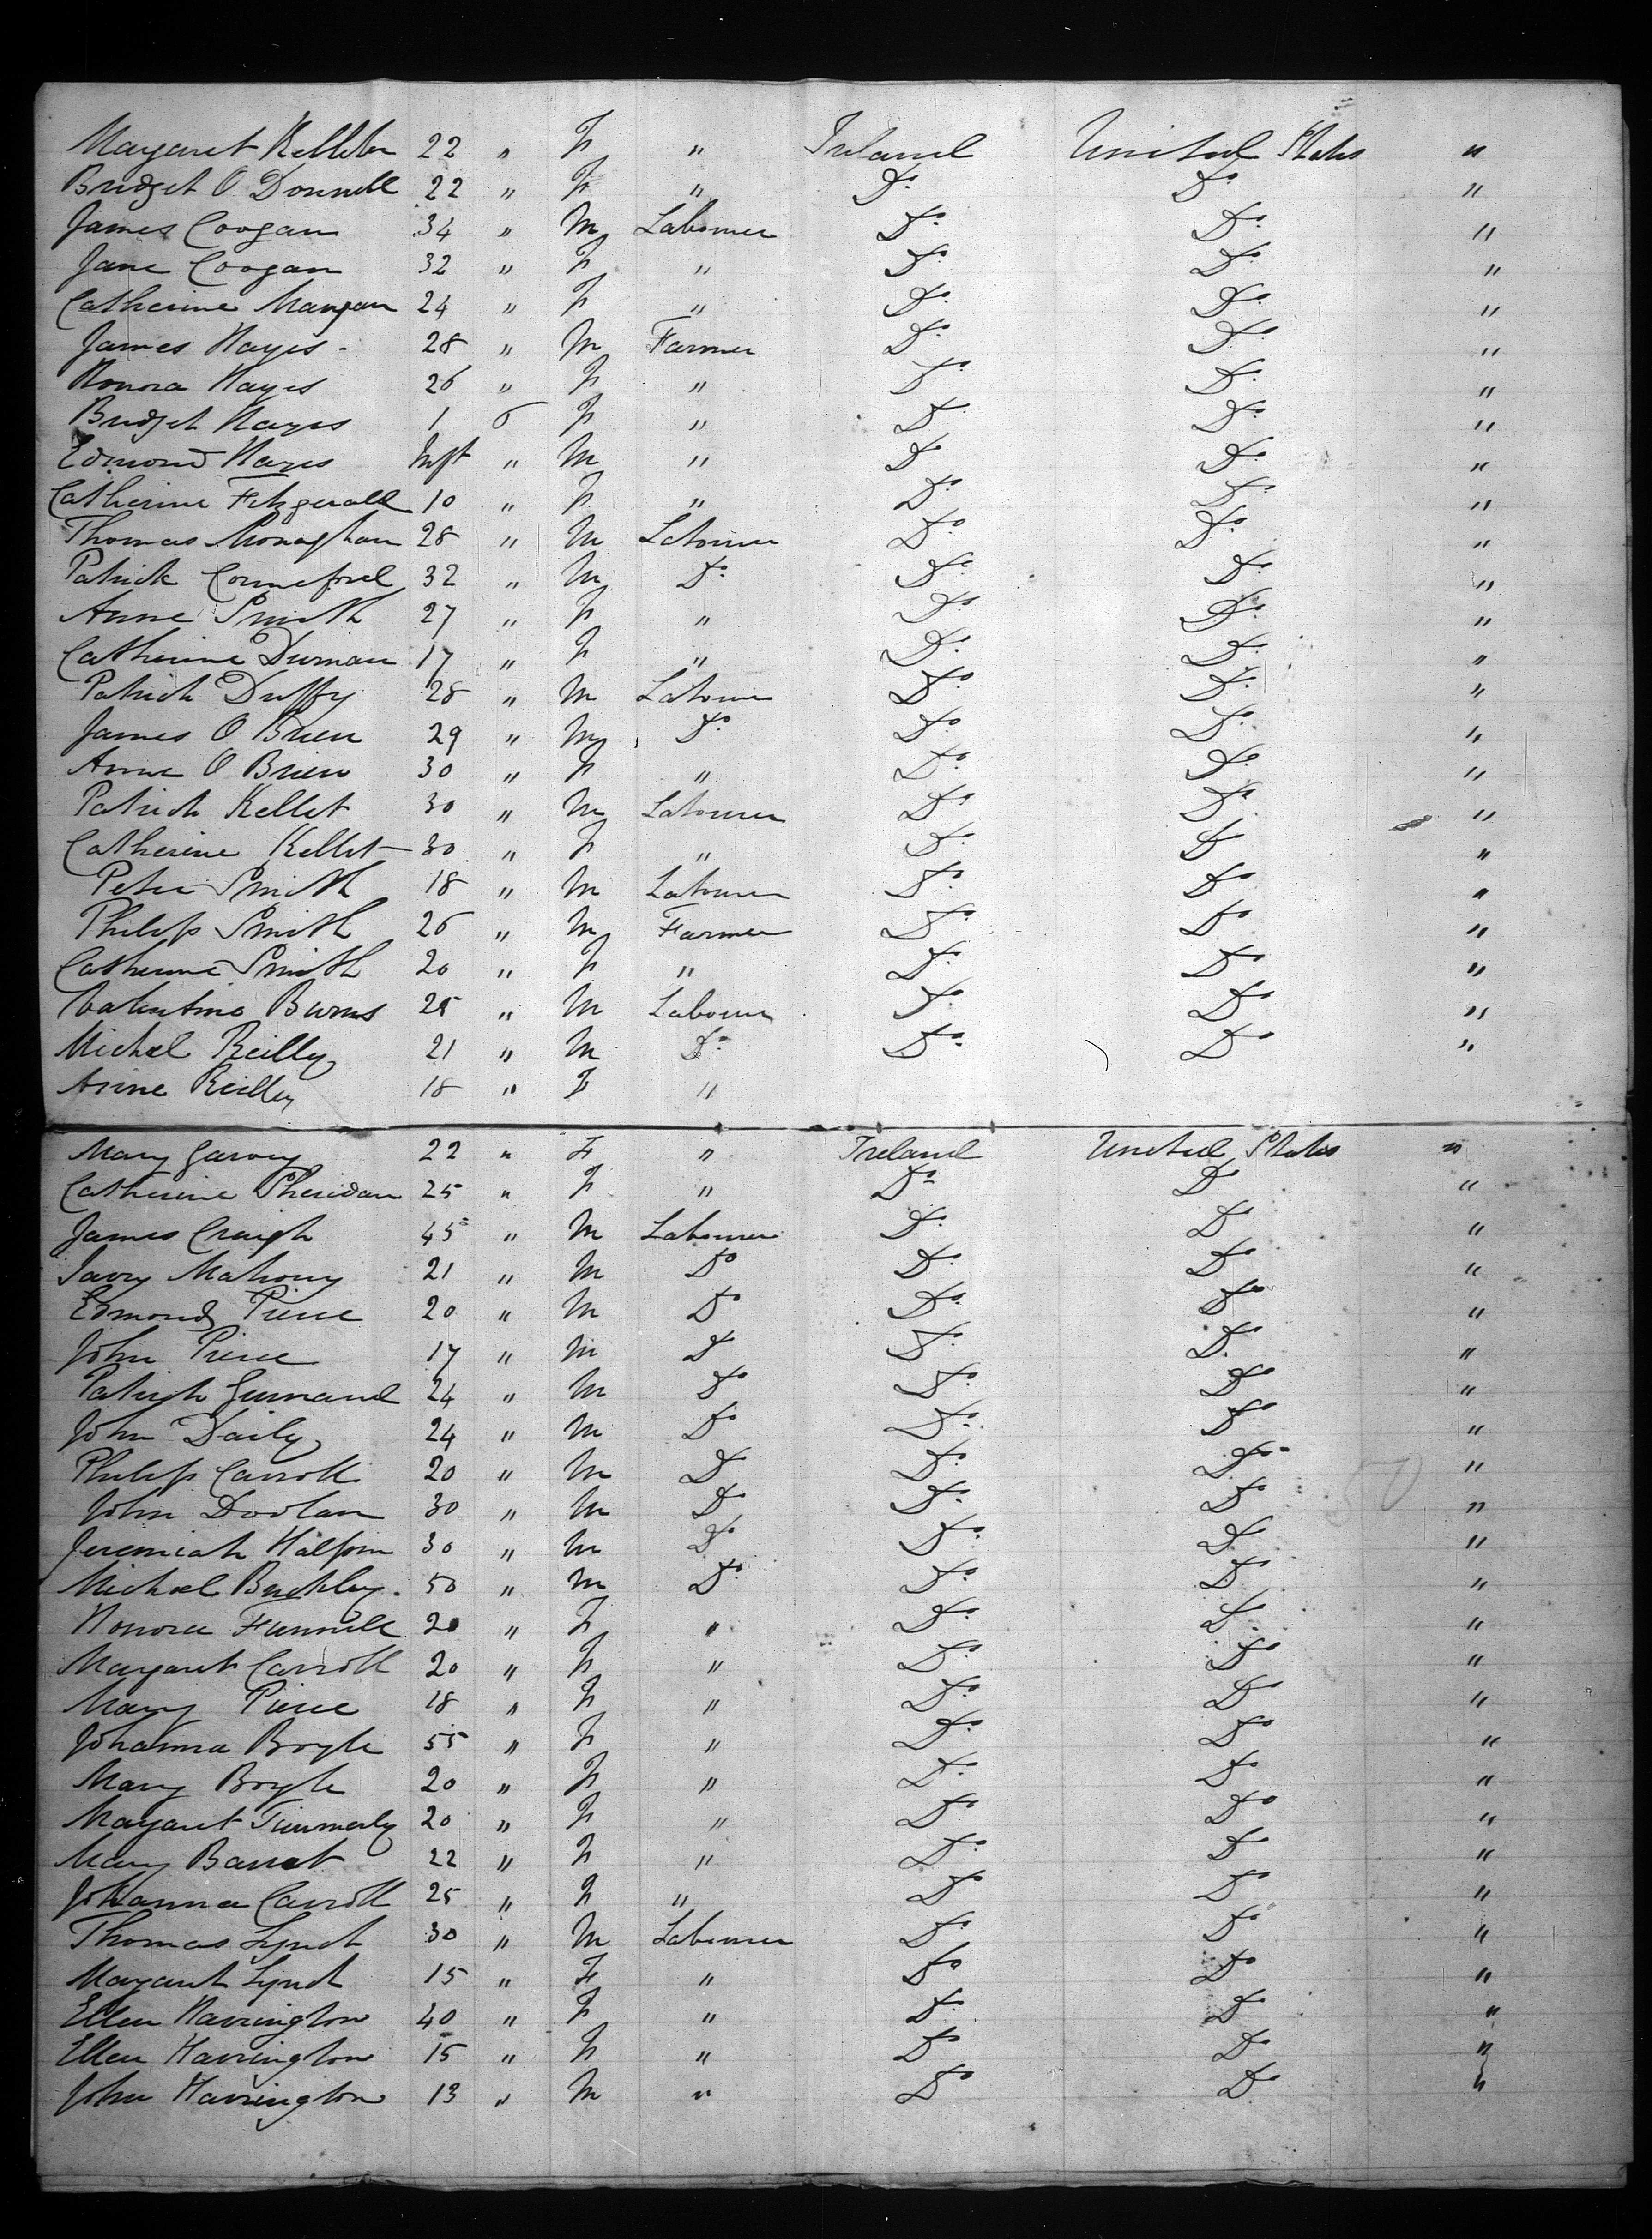 Margaret Kelleher 22 " F " Ireland United States "
Bridget O Donnell 22 " F " Do. Do. "
James Coogan 34 " M Labourer Do. Do. "
Jane Coogan 32 " F " Do. Do. "
Catherine Mangan 24 " F " Do. Do. "
James Hayes - 28 " M Farmer Do. Do. "
Honora Hayes 26 " F " Do. Do. "
Bridget Hayes 1 6 F " Do. Do. "
Edmond Hayes Inft " M " Do. Do. "
Catherine Fitzgerald 10 " F " Do. Do. "
Thomas Monaghan 28 " M Labourer Do. Do. "
Patrick 32 " M Do. Do. Do. "
Anne Smith 27 " F " Do. Do. "
Catherine 17 " F " Do. Do. "
Patrick Duffy 28 " M Labourer Do. Do. "
James O Brien 29 " M Do. Do. Do. "
Anne O Brien 30 " F " Do. Do. "
Patrick Kellet 30 " M Labourer Do. Do. "
Catherine Kellet 30 " F " Do. Do "
Peter Smith 18 " M Labourer Do. Do "
Philip Smith 26 " M Farmer Do. Do "
Catherine Smith 20 " F " Do. Do "
Valentine Burns 25 " M Labourer Do. Do "
Michael Reilly 21 " M Do. Do. Do "
Anne Reilly 18 " F "
Mary Garvey 22 " F " Ireland United States "
Catherine Sheridan 25 " F " Do. Do "
James Creigh 45 " M Labourer Do. Do "
Mahony 21 " M Do Do. Do "
Edmond Pierce 20 " M Do Do. Do "
John Pierce 17 " M Do Do. Do. "
Patrick 24 " M Do Do. Do "
John Daily 24 " M Do Do. Do "
Philip Carroll 20 " M Do Do. Do "
John Doolan 30 " M Do Do. Do "
Jeremiah Halpin 30 " M Do Do. Do "
Michael Buckley. 50 " M Do. Do. Do "
Honora Funnell 20 " F " Do. Do. "
Margaret Carroll 20 " F " Do. Do "
Mary Pierce 18 " F " Do. Do "
Johanna Boyle 55 " F " Do. Do "
Mary Boyle 20 " F " Do. Do "
Margaret 20 " F " Do. Do "
Mary Barret 22 " F " Do. Do "
Johanna Carroll 25 " F " Do Do "
Thomas Lynch 30 " M Labourer Do. Do "
Margaret Lynch 15 " F " Do. Do "
Ellen Harrington 40 " F " Do. Do "
Ellen Harrington 15 " F " Do Do "
John Harrington 13 " M " Do Do "